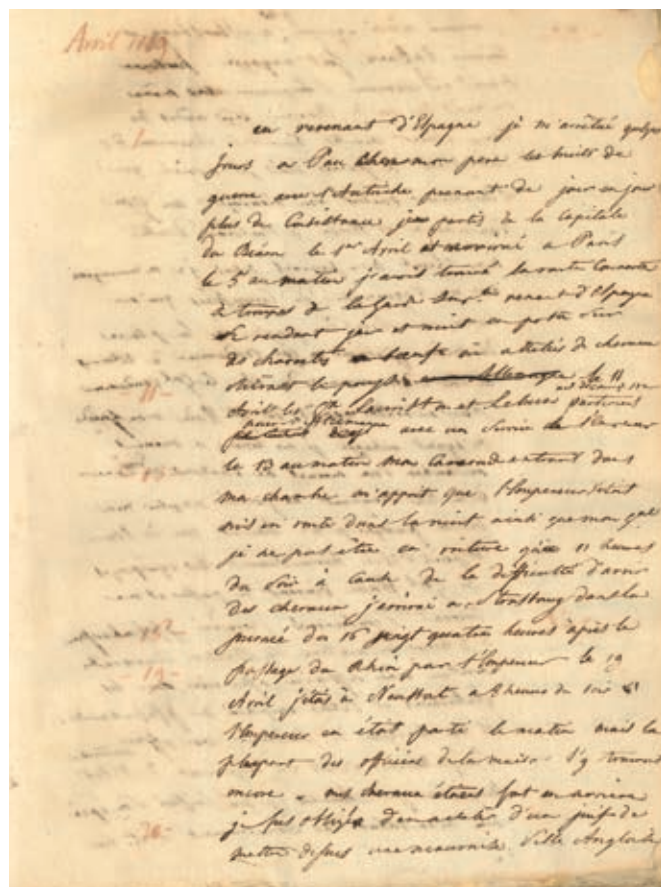 Avril 1809
en revenant d'Espagne je m'arrêtai quelques
jours a Pau chez mon pere les bruits de
guerre avec l'Autriche prenant de jour en jour
plus de Consistance je partis de la Capitale
du Béarn le 1er Avril et arrivai a Paris
le 5 au matin j'avois trouvé la route Couverte
de troupes de la Garde venant d'Espagne
se rendant jour et nuit en poste sur
des charrettes attelés de chevaux
le 11
Avril les Lauriston et Lebrun partirent
pour avec un Service de l'Empereur
le 13 au matin mon Camarade entrant dans
ma chambre m'apprit que l'Empereur s'etoit
mis en route dans la nuit ainsi que mon gal
je ne pus être en voiture qu'a 11 heures
du soir à Cause de la difficulté d'avoir
des chevaux j'arrivai a Strasbourg dans la
journée du 16 vingt quatre heures après le
passage du Rhin par l'Empereur le 19
Avril j'etois à Neustat a 8 heures du soir
l'Empereur en étoit parti le matin mais la
plupart des officiers de la maison s'y trouvoient
encore mes chevaux étoient fort en arriere
je fus obligé d'en acheter d'un juif de
mettre dessus une mauvaise Selle Anglaise